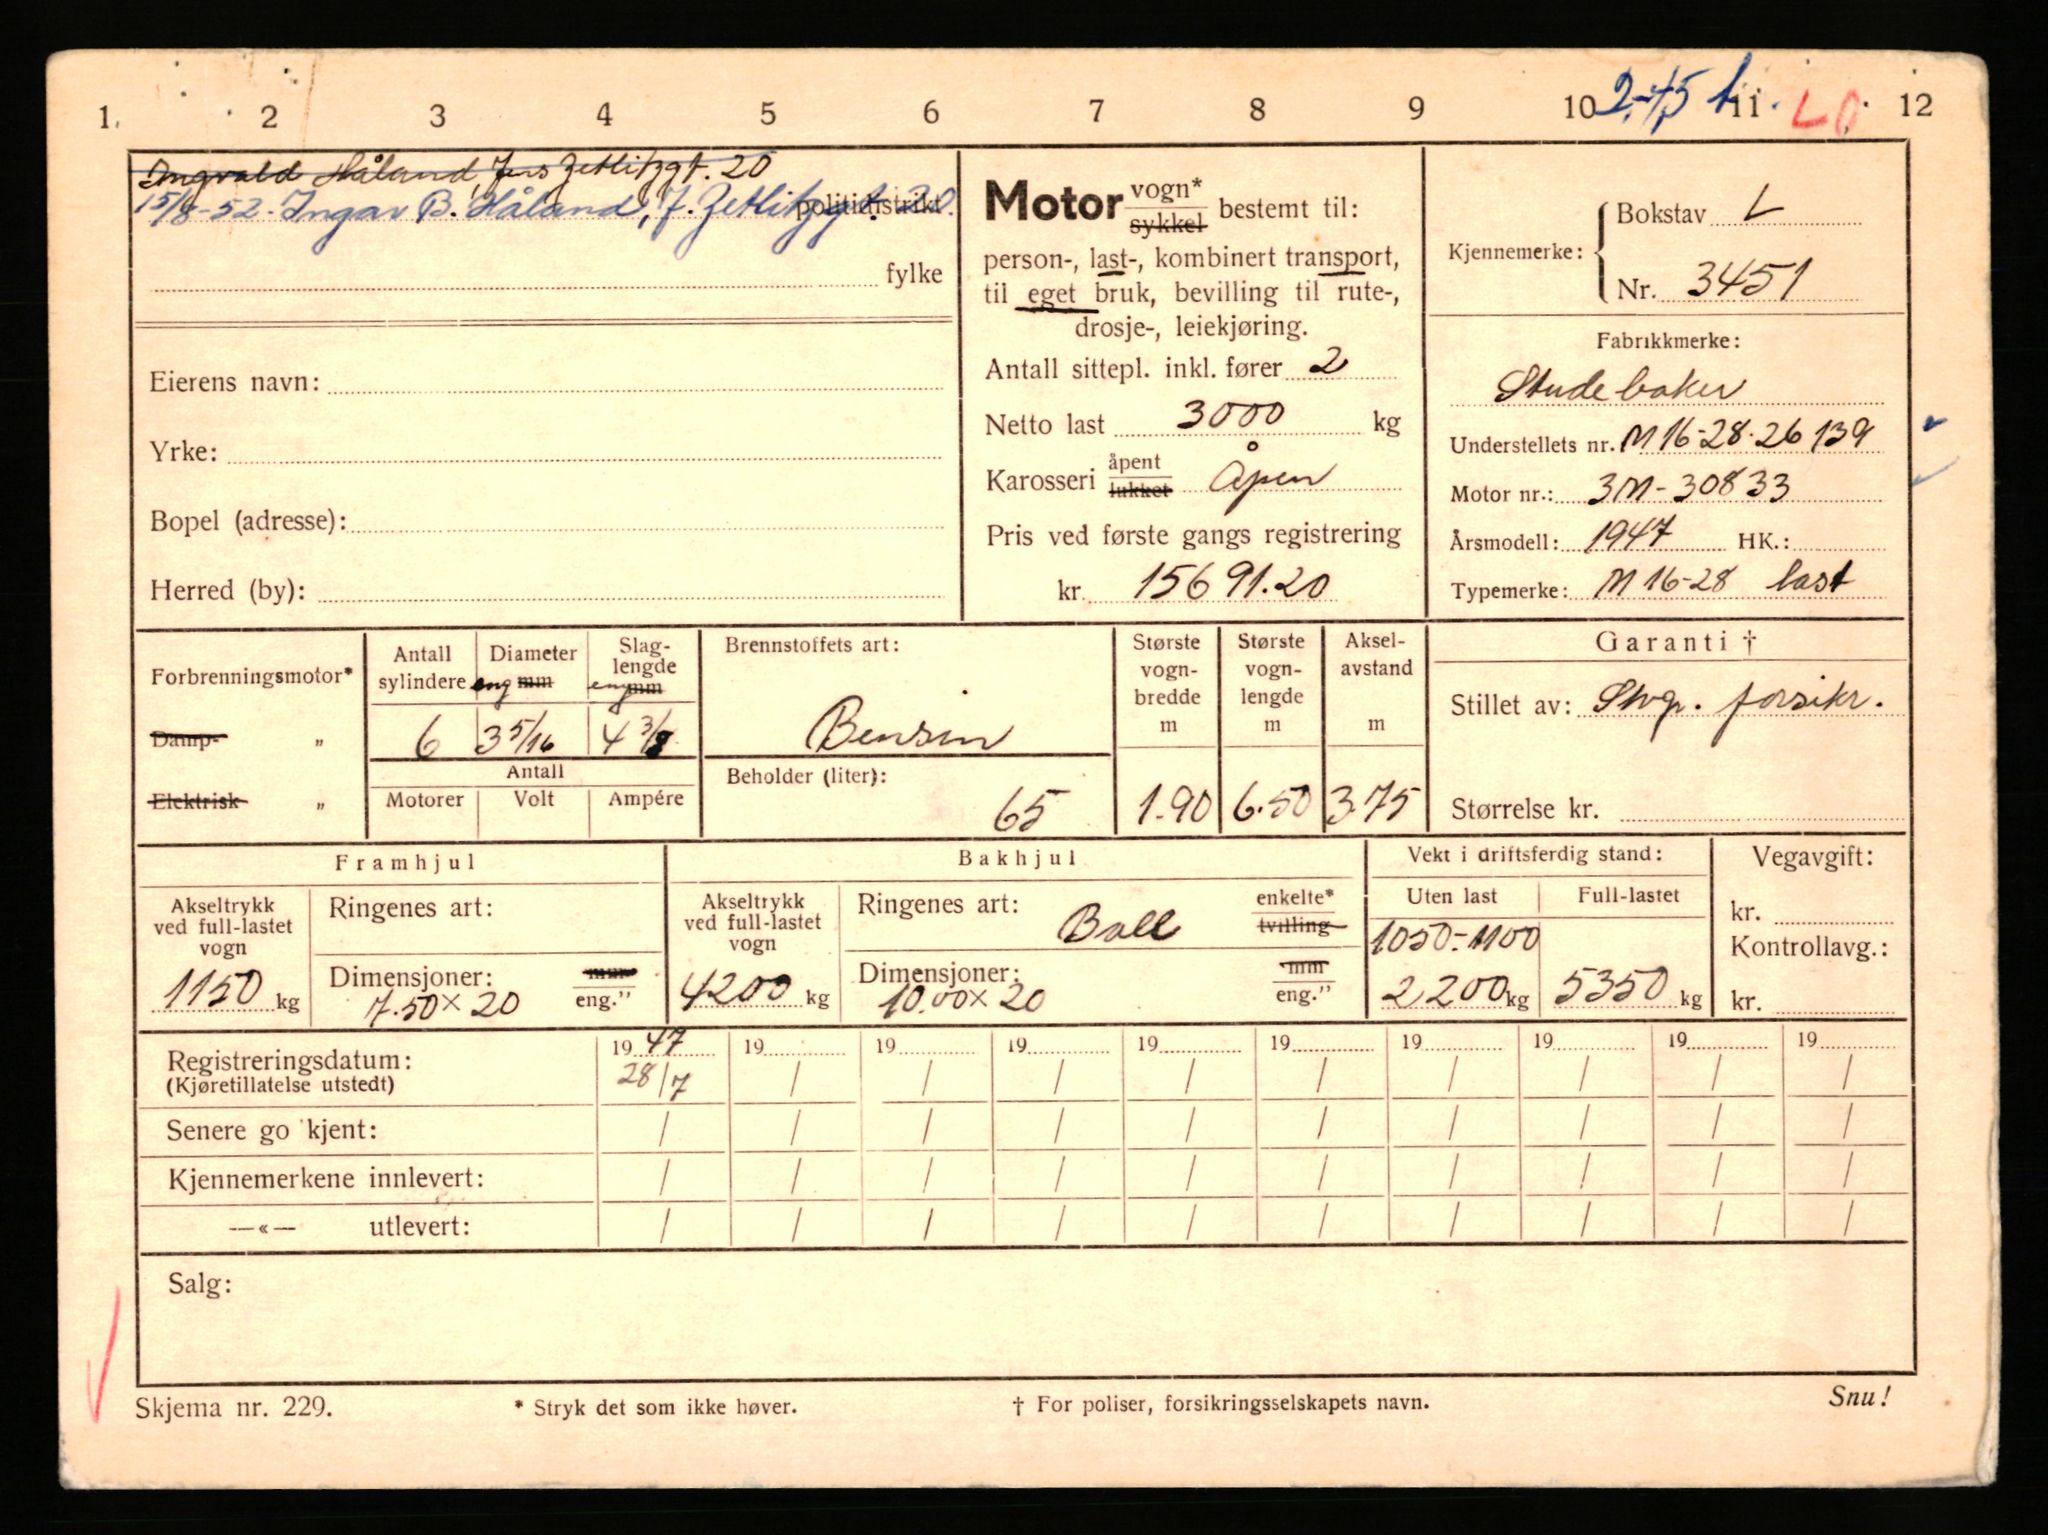 1. 2 3 4 5 6 7 8 9 10 11 12
2-45 L0
Ingvald Håland, Jens Zetlitzgt. 20
15/8-52. Ingar B. Håland, J. Zetlitzgt. 20. politidistrikt
fylke
Eierens navn:
Yrke:
Bopel (adresse):
Herred (by):
Motor vogn* sykkel bestemt til:
person-, last-, kombinert transport,
til eget bruk, bevilling til rute-,
drosje-, leiekjøring.
Antall sittepl. inkl. fører 2
Netto last 3000 kg
Karosseri åpent lukket Åpen
Pris ved første gangs registrering
kr. 15691.20
Kjennemerke: Bokstav L
Nr. 3451
Fabrikkmerke:
Studebaker
Understellets nr. M16-28-26139
Motor nr.: 3M-30833
Årsmodell: 1947 HK.:
Typemerke: M16-28 last
Forbrenningsmotor*
Damp- "
Elektrisk "
Antall sylindere Diameter eng mm Slag-lengde eng mm
6 3 5/16 4 3/8
Antall
Motorer Volt Ampére
Brennstoffets art:
Bensin
Beholder (liter):
65
Største vogn-bredde m Største vogn-lengde m Aksel-avstand m
1.90 6.50 3.75
Garanti †
Stillet av: Stvgr. forsikr.
Størrelse kr.
Framhjul
Akseltrykk ved full-lastet vogn
1150 kg
Ringenes art:
Dimensjoner: mm
7.50 x 20 eng."
Bakhjul
Akseltrykk ved full-lastet vogn
4200 kg
Ringenes art: Ball enkelte* tvilling
Dimensjoner: mm
10.00 x 20 eng."
Vekt i driftsferdig stand:
Uten last Full-lastet
1050-1100
2200 kg 5350 kg
Vegavgift:
kr.
Kontrollavg.:
kr.
Registreringsdatum: 19 47 19 19 19 19 19 19 19 19 19
(Kjøretillatelse utstedt) 28/7 / / / / / / / / /
Senere go kjent: / / / / / / / / / /
Kjennemerkene innlevert: / / / / / / / / / /
—«— utlevert: / / / / / / / / / /
Salg:
Skjema nr. 229. * Stryk det som ikke høver. † For poliser, forsikringsselskapets navn. Snu!